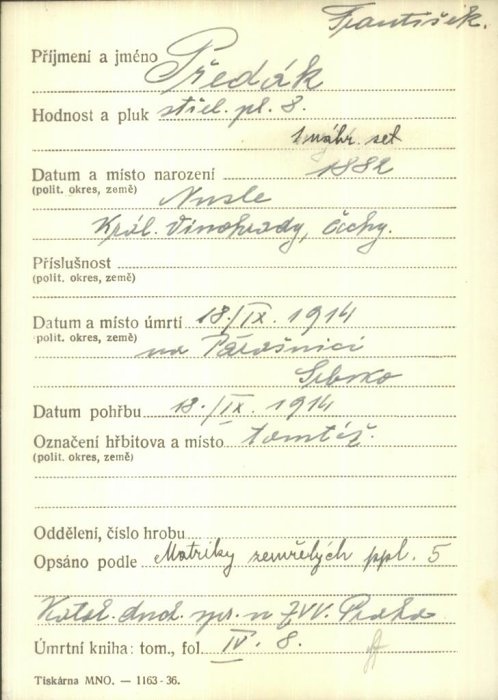 František.
Příjmení a jméno Předák
Hodnost a pluk střel. pl. 8.
1 náhr. set
Datum a místo narození 1882
(polit. okres, země) Nusle
Král. Vinohrady, Čechy.
Příslušnost
(polit. okres, země)
Datum a místo úmrtí 18./IX. 1914
(polit. okres, země) na Parašnici
Srbsko
Datum pohřbu 18./IX. 1914
Označení hřbitova a místo tamtéž.
(polit. okres, země)
Oddělení, číslo hrobu
Opsáno podle Matriky zemřelých ppl. 5
Katol. duch. spr. u ZVV. Praha
Úmrtní kniha: tom., fol. IV. 8.
Tiskárna MNO. — 1163-36.